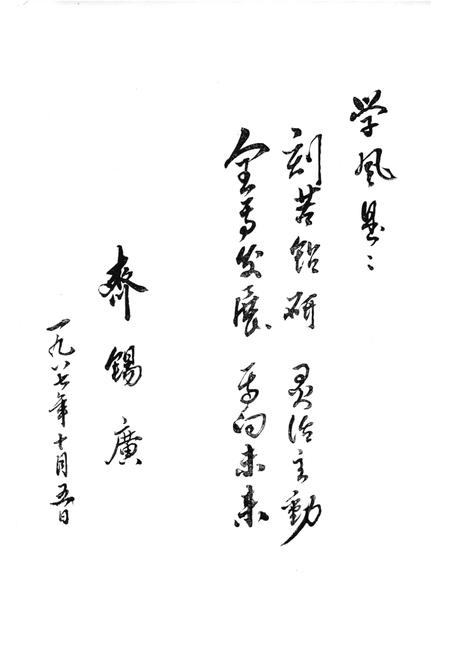 学风是：
刻苦钻研 灵活主動
全面发展 面向未来
齐锡廣
一九八七年十月五日